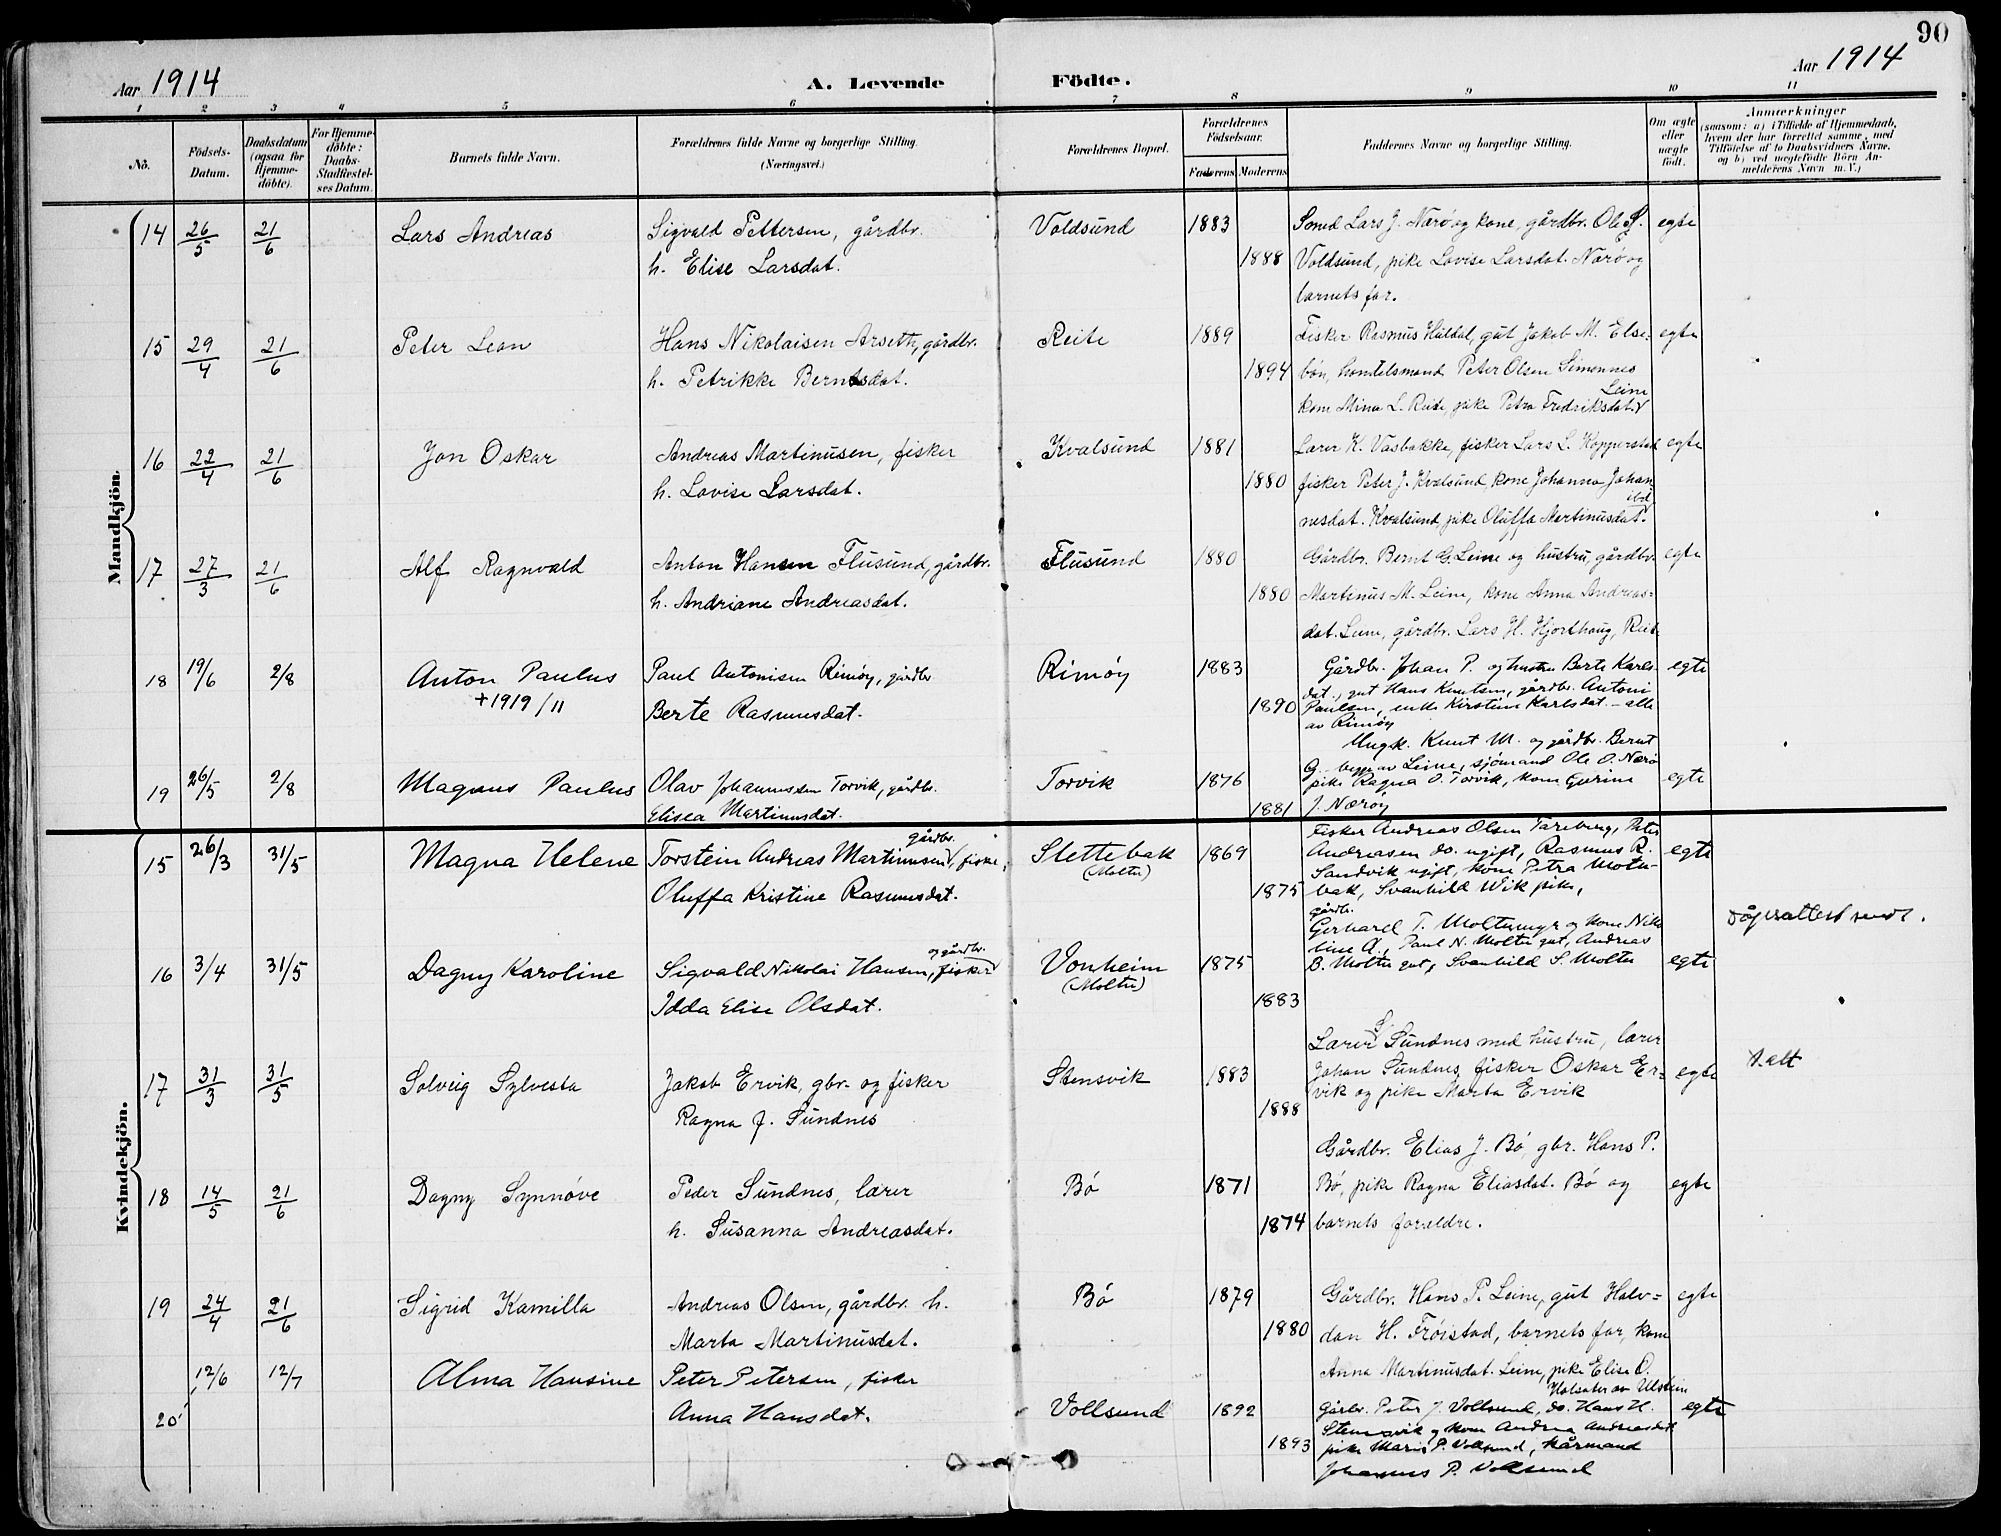 90
Aar 1914
A. Levende Födte.
Aar 1914
1 2 3 4 5 6 7 8 9 10 11
No.
Födsels-Datum.
Daabsdatum (ogsaa for Hjemme-döbte).
For Hjemme-döbte: Daabs-Stadfæstel-ses Datum.
Barnets fulde Navn.
Forældrenes fulde Navne og borgerlige Stilling. (Næringsvei.)
Forældrenes Bopæl.
Forældrenes Födselsaar.
Faderens Moderens
Faddernes Navne og borgerlige Stilling.
Om ægte eller uægte födt.
Anmærkninger
(saasom: a) i Tilfælde af Hjemmedaab,
hvem der har forrettet samme, med
Tilföielse af to Daabsvidners Navne,
og b) ved uægtefödte Börn An-
melderens Navn m. V.)
Mandkjön.
14 26/5 21/6 Lars Andreas Sigvald Pettersen, gårdbr. Voldsund 1883 Smed Lars J. Nærö og kone, gårdbr. Ole S. egte
h. Elise Larsdat. 1888 Voldsund, pike Lovise Larsdat. Nærö og
barnets far.
15 29/4 21/6 Peter Leon Hans Nikolaisen Arseth, gårdbr. Reite 1889 Fisker Rasmus Huldal, gut Jakob M. Else- egte
h. Petrikke Berntsdat. 1894 bön, handelsmand Peter Olsen Simonnes
Leine
kone Mina L. Reite, pike Petra Fredriksdat.
16 22/4 21/6 Jon Oskar Andreas Martinusen, fisker Kvalsund 1881 Lærer K. Vasbakke, fisker Lars L. Kopperstad egte
h. Lovise Larsdat. 1880 fisker Peter J. Kvalsund, kone Johanna Johan-
ibd
nesdat. Kvalsund, pike Oluffa Martinusdat.
17 27/3 21/6 Alf Ragnvald Anton Hansen Flusund, gårdbr. Flusund 1880 Gårdbr. Bernt G. Leine og hustru, gårdbr. egte
h. Andriane Andreasdat. 1880 Martinus M. Leine, kone Anna Andreas-
dat. Leine, gårdbr. Lars H. Hjorthaug, Reite
18 19/6 2/8 Anton Paulus Paul Antonisen Rimöy, gårdbr Rimöy 1883 Gårdbr. Johan P. og hustru Berte Karls- egte
+ 1919/11 Berte Rasmusdat. 1890 dat., gut Hans Knutsen, gårdbr. Antoni
Paulsen, enke Kirstine Karlsdat. - alle
av Rimöy
Ungk. Knut M. og gårdbr. Bernt
G. begge av Leine, sjömand Ole O. Nærö
19 26/5 2/8 Magnus Paulus Olav Johannessen Torvik, gårdbr. Torvik 1876 pike Ragna O. Torvik, kone Gurine egte
Elisea Martinusdat. 1881 J. Næröy
Kvindekjön.
Fisker Andreas Olsen Tareberg, Peter
gårdbr.
15 26/3 31/5 Magna Helene Torstein Andreas Martinusen, fisker, Slettebak 1869 Andreasen do. ugift, Rasmus R. egte
(Moltu) Sandvik ugift, kone Petra Moltu-
Oluffa Kristine Rasmusdat. 1875 bak, Svanhild Wik pike,
gårdb.
Gerhard T. Moltumyr og kone Niko- Dåpsattest sendt.
og gårdbr. line A., Paul N. Moltu gut, Andreas
16 3/4 31/5 Dagny Karoline Sigvald Nikolai Hansen, fisker Vonheim 1875 B. Moltu gut, Svanhild S. Moltu egte
(Moltu)
Idda Elise Olsdat. 1883
Lærer S. Sundnes med hustru, lærer
17 31/3 31/5 Solveig Sylvesta Jakob Ervik, gbr. og fisker Stensvik 1883 Johan Sundnes, fisker Oskar Er- egte
Ragna J. Sundnes 1888 vik og pike Marta Ervik
Gårdbr. Elias J. Bö, gbr. Hans P.
18 14/5 21/6 Dagny Synnöve Peder Sundnes, lærer Bö 1871 Bö, pike Ragna Eliasdat. Bö og egte
h. Susanna Andreasdat. 1874 barnets forældre.
19 24/4 21/6 Sigrid Kamilla Andreas Olsen, gårdbr. h. Bö 1879 Gårdbr. Hans P. Leine, gut Halv- egte
Marta Martinusdat. 1880 dan H. Fröistad, barnets far, kone
Anna Martinusdat. Leine, pike Elise O.
12/6 12/7 Alma Hansine Peter Petersen, fisker
20 Anna Hansdat. Vollsund 1892 Gårbr. Peter J. Vollsund, do. Hans H. egte
Stensvik og kone Andrea Andreasdat
1893 pike Marie P. Vollsund, kårmand
Johannes P. Vollsund